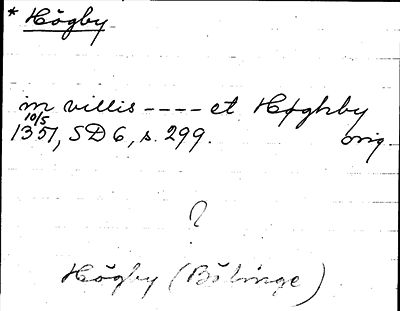 * Högby
in villis ---- et Høghby
10/5
1351, SD 6, s. 299. orig.
?
Högby (Bälinge)